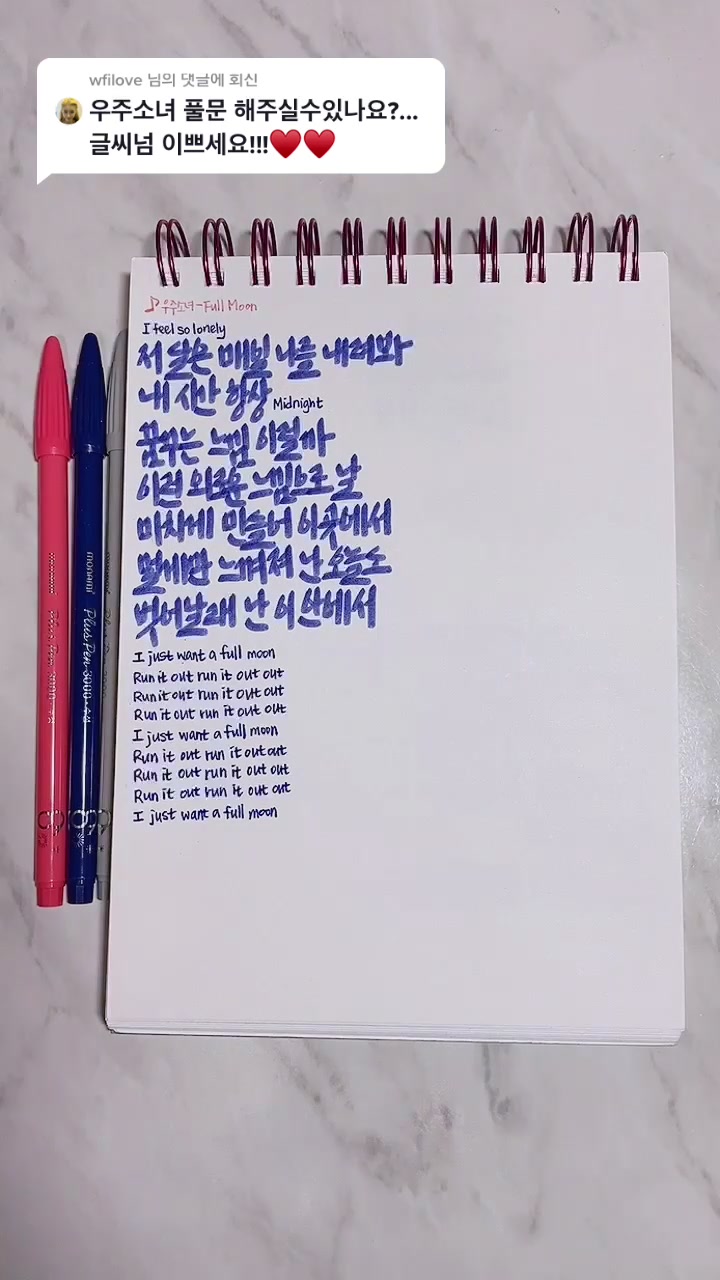 wfilove 님의 댓글에 회신
우주소녀 풀문 해주실수있나요?...
글씨넘 이쁘세요!!!❤️❤️
♪우주소녀-Full Moon
I feel so lonely
저 달은 매일 나를 내려봐
내 시간 항상 Midnight
꿈꾸는 느낌 이럴까
이런 외로운 느낌으로 날
마치에 만들어 이곳에서
멀게만 느껴져 난 오늘도
벗어날래 난 이 안에서
I just want a full moon
Run it out run it out out
Run it out run it out out
Run it out run it out out
I just want a full moon
Run it out run it out out
Run it out run it out out
Run it out run it out out
I just want a full moon
monami Plus Pen 3000
monami Plus Pen 3000